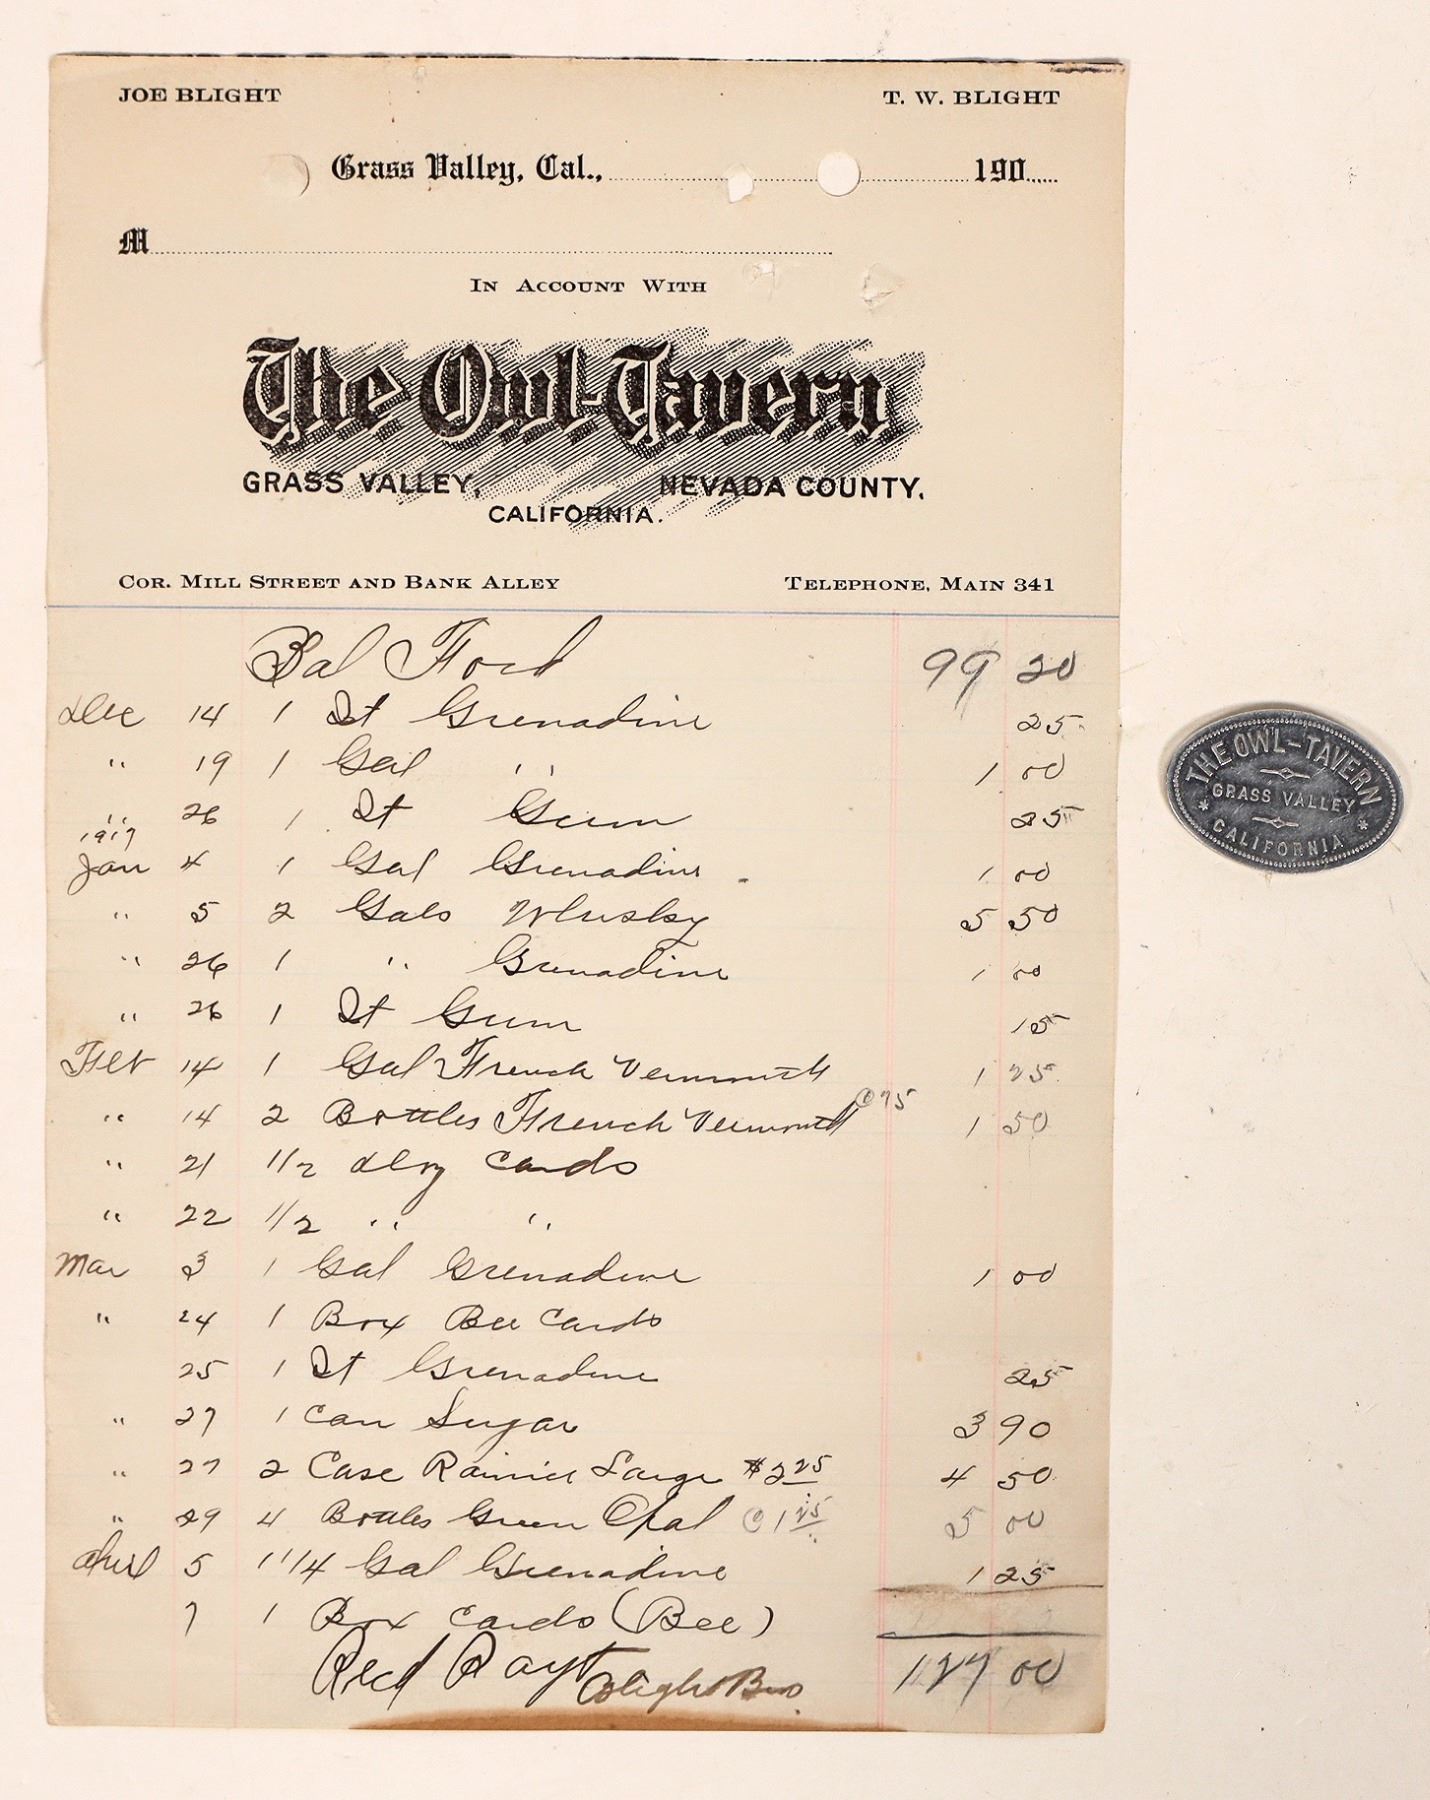 JOE BLIGHT T. W. BLIGHT
Grass Valley, Cal., 190
M
IN ACCOUNT WITH
The Owl-Tavern
GRASS VALLEY, NEVADA COUNTY,
CALIFORNIA.
COR. MILL STREET AND BANK ALLEY TELEPHONE, MAIN 341
Bal Ford 99 20
Dec 14 1 Qt Grenadine 25
" 19 1 Gal " 1 00
" 26 1 Qt Gum 25
1917
Jan 4 1 Gal Grenadine 1 00
" 5 2 Gals Whisky 5 50
" 26 1 " Grenadine 1 00
" 26 1 Qt Gum 15
Feb 14 1 Gal French Vermouth 1 25
" 14 2 Bottles French Vermouth @75 1 50
" 21 1/2 doz Cards
" 22 1/2 " "
Mar 3 1 Gal Grenadine 1 00
" 24 1 Box Bee Cards
25 1 Qt Grenadine 25
" 27 1 Can Sugar 3 90
" 27 2 Case Rainier Large $2 25 4 50
" 29 4 Bottles Green Chal @ 1 25 5 00
5 1 1/4 Gal Grenadine 1 25
7 1 Box Cards (Bee)
Recd Payt Blight Bros 127 00
THE OWL-TAVERN
GRASS VALLEY
* CALIFORNIA *